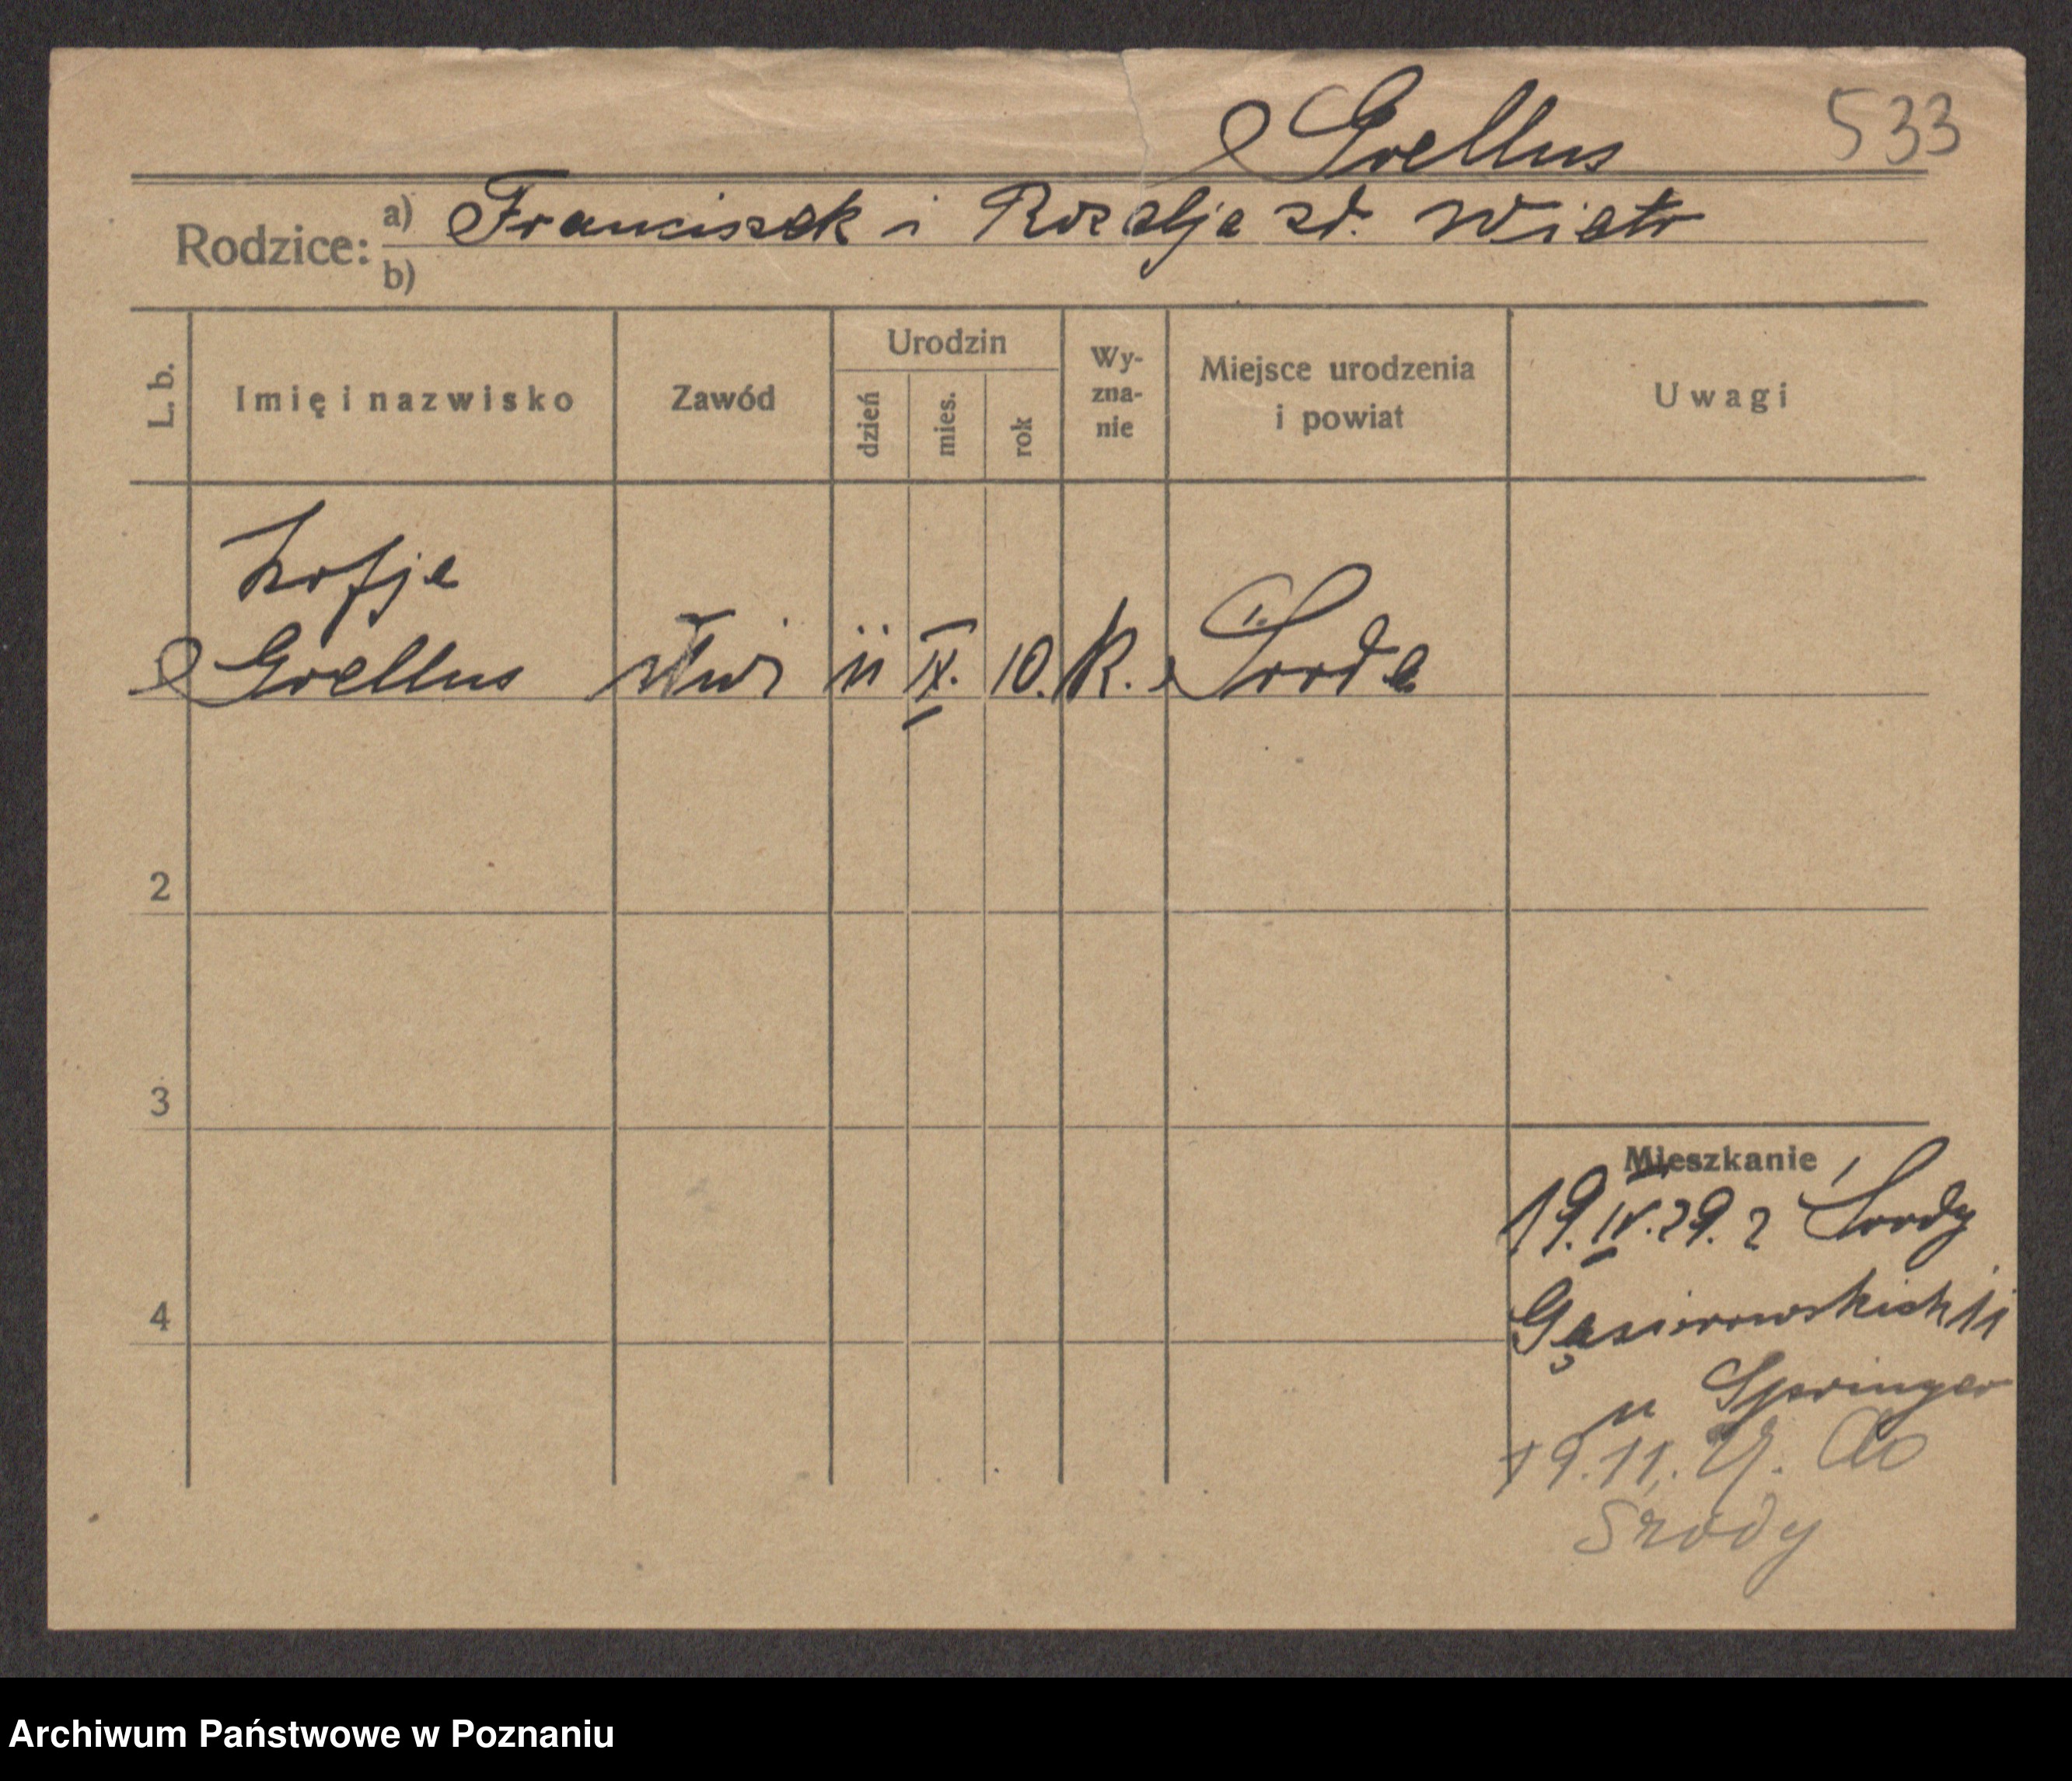 Grellus 533
Rodzice: a) Franciszek i Rozalja zd. Wiatr
b)
L. b. Imię i nazwisko Zawód Urodzin dzień mies. rok Wyznanie Miejsce urodzenia i powiat Uwagi
Zofja
Grellus służ 11 IX. 10. k. Środa
2
3
Mieszkanie
19.IV.29. z Środy
4
Gąsiorowskich 11
u Springer
19.11. do
Środy
Archiwum Państwowe w Poznaniu